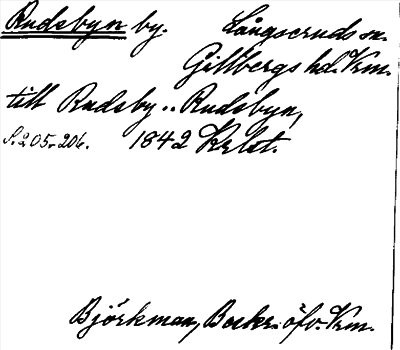 Rudsbyn by. Långseruds sn.
Gillbergs hd. Vrm.
till Rudsby.. Rudsbyn,
S. 205-206. 1842 Krlst.
Björkman, Beskr. öfv. Vrm.